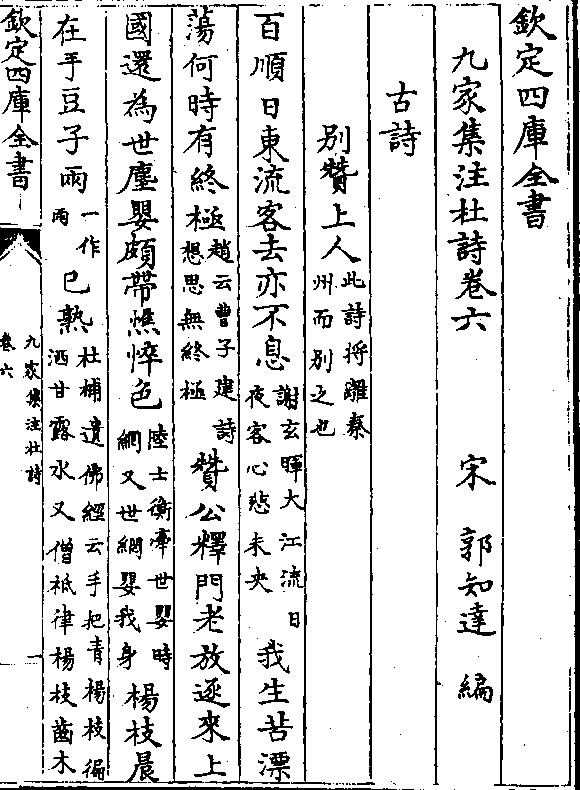 欽定四庫全書
九家集注杜詩卷六
宋 郭知達 編
古詩
別贊上人
此詩將離秦
州而別之也
百順日東流客去亦不息
謝玄暉大江流日
夜客心悲未央
我生苦漂
蕩何時有終極
趙云曹子建詩
想思無終極
贊公釋門老放逐來上
國還為世塵嬰頗帶憔悴色
陸士衡牽世嬰時
網又世網嬰我身
楊枝晨
在手豆子雨
一作
兩
已熟
杜補遺佛經云手把青楊枝徧
洒甘露水又僧祗律楊枝齒木
欽定四庫全書
九家集注杜詩
卷六
一